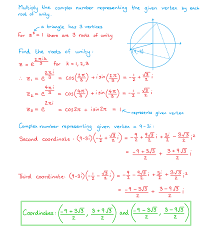 Multiply the complex number representing the given vertex by each
root of unity.
a triangle has 3 vertices
For z³ = 1 there are 3 roots of unity
Find the roots of unity:
z = e^(2πki/3) for k = 1, 2, 3
∴ z₁ = e^(2πi/3) = cos(2π/3) + i sin(2π/3) = -1/2 + √3/2 i
z₂ = e^(4πi/3) = cos(4π/3) + i sin(4π/3) = -1/2 - √3/2 i
z₃ = e^(2πi) = cos2π + i sin2π = 1
represents given vertex
Complex number representing given vertex = 9 - 3i
Second coordinate: (9-3i)(-1/2 + √3/2 i)
= (-9 + 3√3)/2 , (3 + 9√3)/2
Third coordinate: (9-3i)(-1/2 - √3/2 i)
Coordinates: and